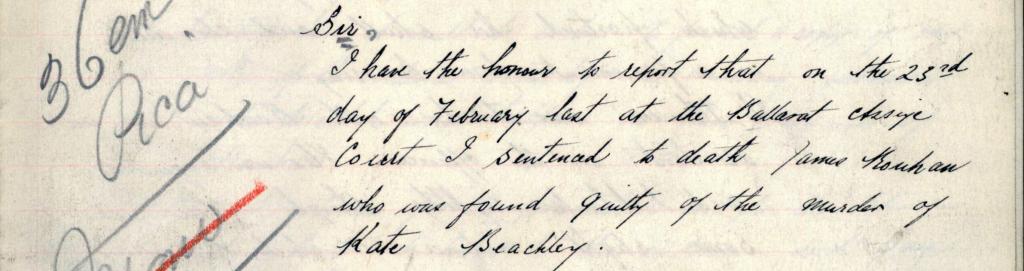 36 em
Pica
Sir,
I have the honour to report that on the 23rd
day of February last at the Ballarat Assize
Court I sentenced to death James
who was found guilty of the murder of
Kate Beachley.